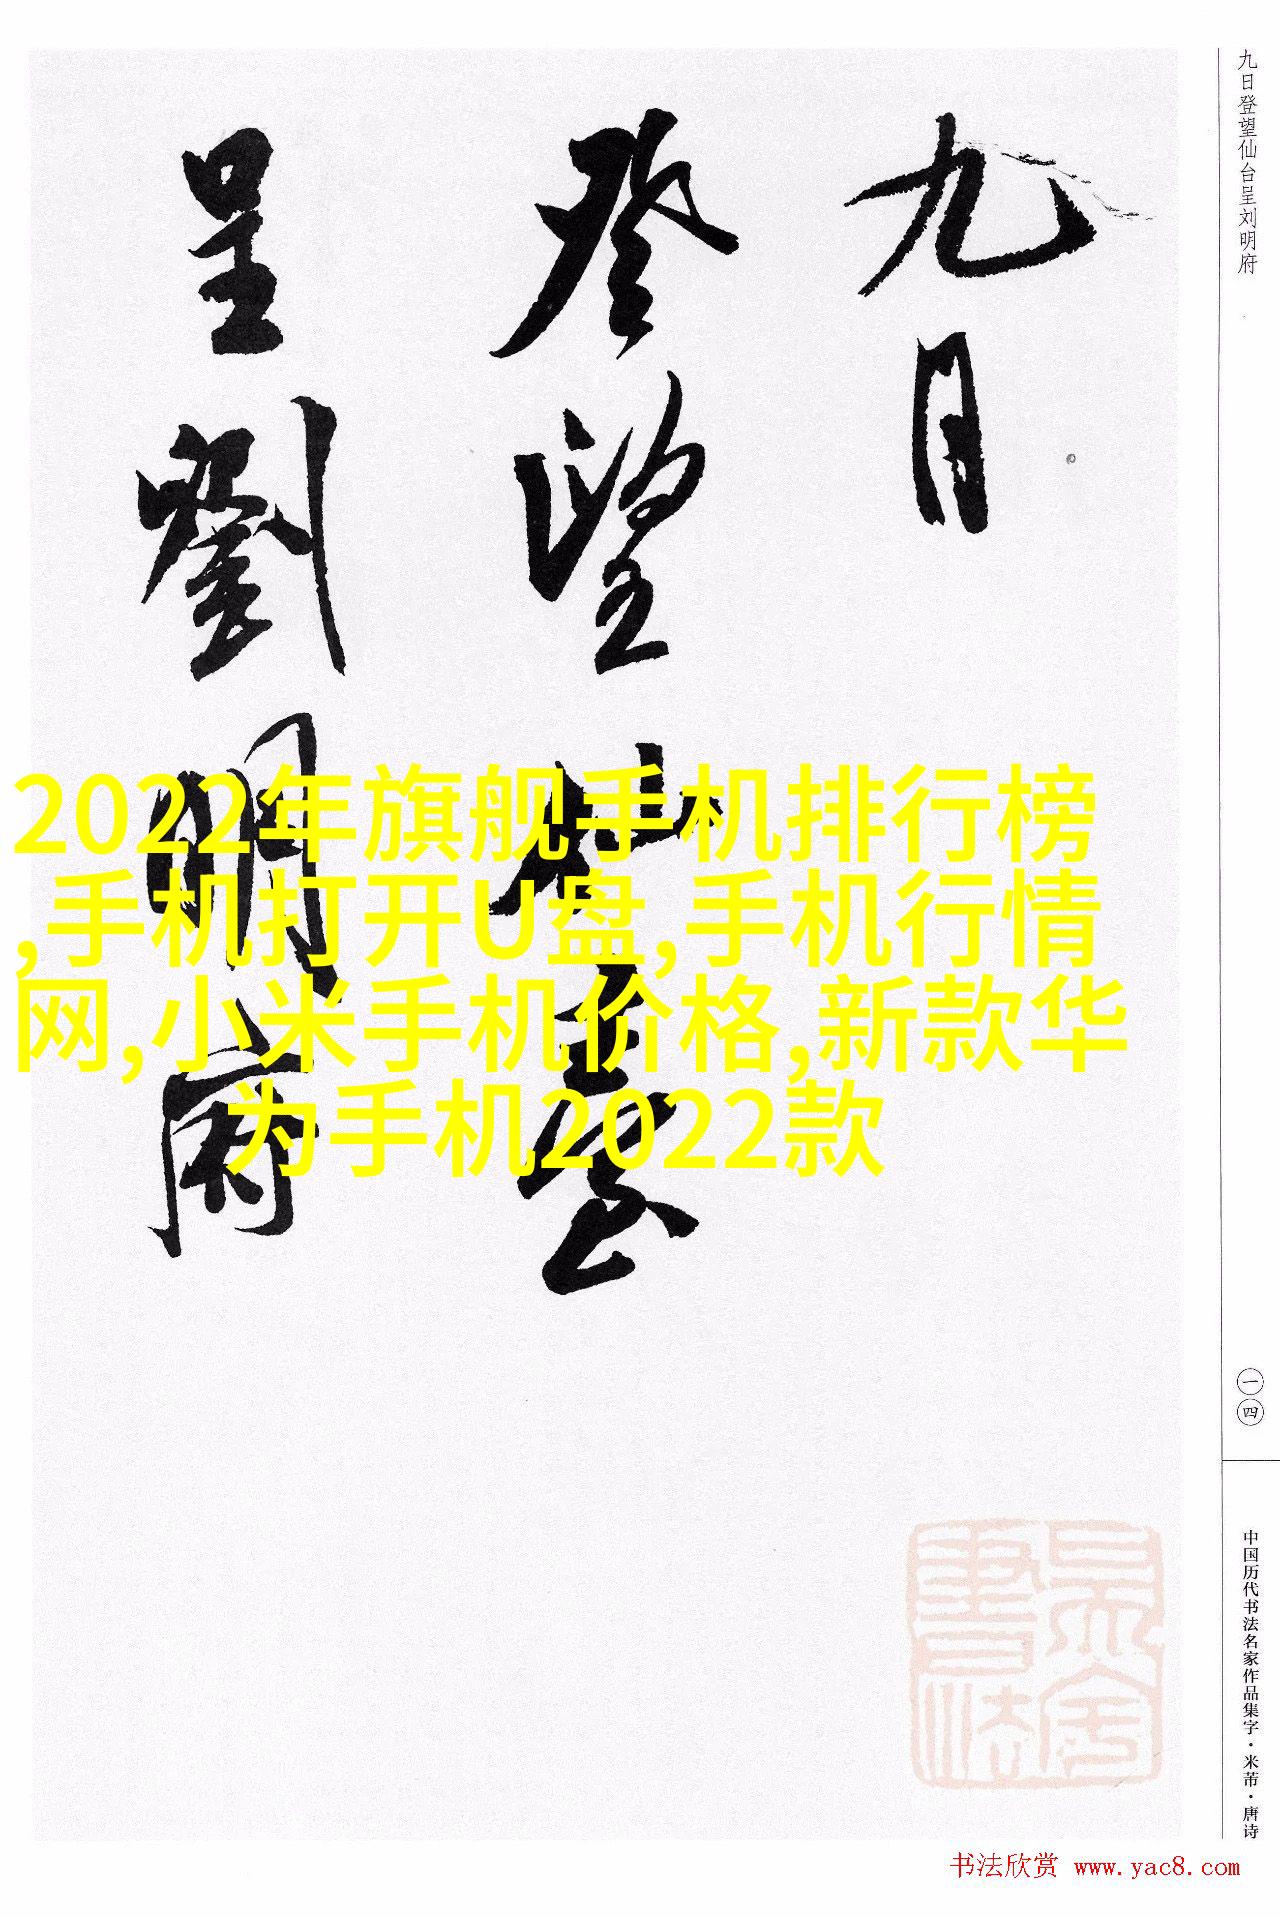 九日
登望仙臺
呈劉明府
九日登望仙台呈刘明府
一四
中国历代书法名家作品集字·米芾·唐诗
2022年旗舰手机排行榜
,手机打开U盘,手机行情
网,小米手机价格,新款华
为手机2022款
书法欣赏 www.yac8.com